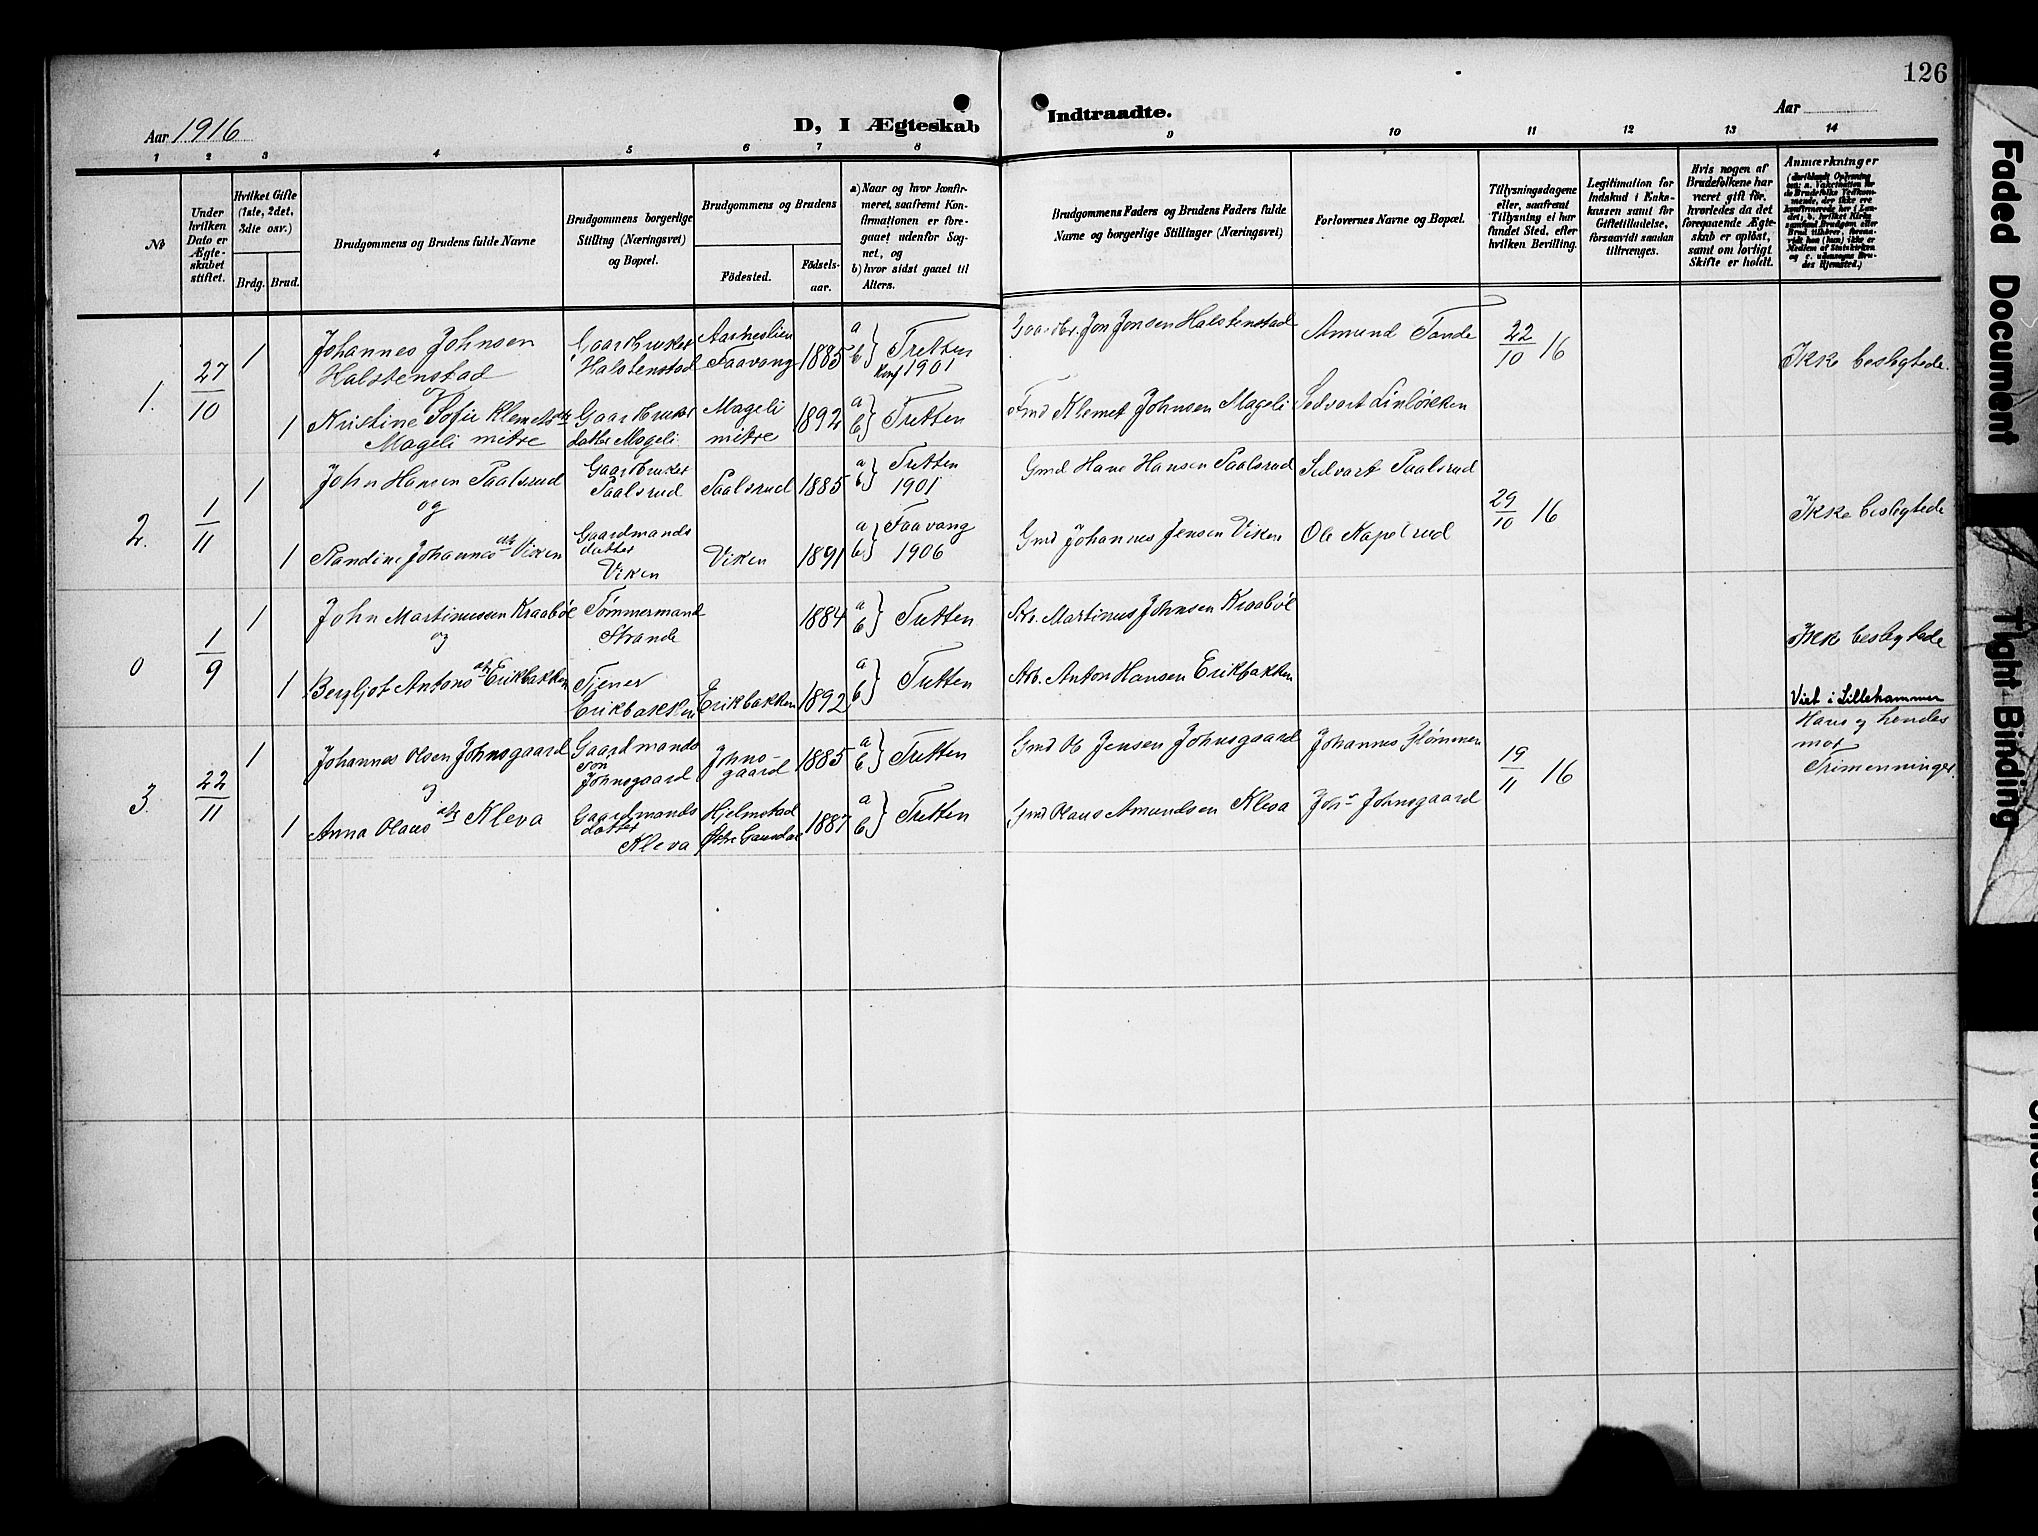 126
Aar 1916
D, I Ægteskab Indtraadte.
Aar
1 2 3 4 5 6 7 8 9 10 11 12 13 14
No
Under hvilken Dato er Ægteskabet stiftet.
Hvilket Gifte (1ste, 2det, 3die osv.)
Brdg. Brud.
Brudgommens og Brudens fulde Navne
Brudgommens borgerlige Stilling (Næringsvei) og Bopæl.
Brudgommens og Brudens
Födested.
Födsels-aar.
a) Naar og hvor konfirmeret, saafremt Konfirmationen er foregaaet udenfor Sognet, og
b) hvor sidst gaaet til Alters.
Brudgommens Faders og Brudens Faders fulde Navne og borgerlige Stillinger (Næringsvei)
Forlovernes Navne og Bopæl.
Tillysningsdagene eller, saafremt Tillysning ei har fundet Sted, efter hvilken Bevilling.
Legitimation for Indskud i Enkekassen samt för Giftetilladelse, forsaavidt saadan tiltrænges.
Hvis nogen af Brudefolkene har været gift för, hvorledes da det foregaaende Ægteskab er oplöst, samt om lovligt Skifte er holdt.
Anmærkninger
1. 27/10 1 Johannes Johnsen
Halstenstad
og
Gaardbruker
Halstenstad
Aarneslien
Faavang
1885
a
b} Tretten
Konf 1901
Gaardbr. Jon Jonsen Halstenstad
Amund Tande
22/10 16
Ikke beslegtede.
1 Kristine Sofie Klemetsdtr
Mageli mitre
Gaardbruker
datter Mageli
Mageli
mitre
1892
a
b} Tretten
Gmd Klemet Johnsen Mageli
Sedvart Linløkken
2. 1/11 1 John Hansen Paalsrud
og
Gaardbruker
Paalsrud
Paalsrud
1885
a
b} Tretten
1901
Gmd Hans Hansen Paalsrud
Sedvart Paalsrud
29/10 16
Ikke beslegtede
1 Randine Johannesdtr Viken
Gaardmands
datter
Viken
Viken
1891
a
b} Faavang
1906
Gmd Johannes Jensen Viken
Ole Kapelrud
0 1/9 1 John Martinussen Kraabøl
og
Tømmermand
Strande
1884
a
b} Tretten
Arb. Martinus Johnsen Kraabøl
Ikke beslegtede
1 Bergljot Antonsdtr Erikbakken
Tjener
Erikbakken
Erikbakken
1892
a
b} Tretten
Arb. Anton Hansen Erikbakken
Viet i Lillehammer
3. 22/11 1 Johannes Olsen Johnsgaard
og
Gaardmands
søn
Johnsgaard
Johns-
gaard
1885
a
b} Tretten
Gmd Ol Jensen Johnsgaard
Johannes Glømmen
19/11 16
Hans og hendes
mor
Trimenninger.
1 Anna Olausdtr Kleva
Gaardmands
datter
Kleva
Hjelmstad
Østre Gausdal
1887
a
b} Tretten
Gmd Olaus Amundsen Kleva
Johs Johnsgaard
Faded Document
Tight Binding